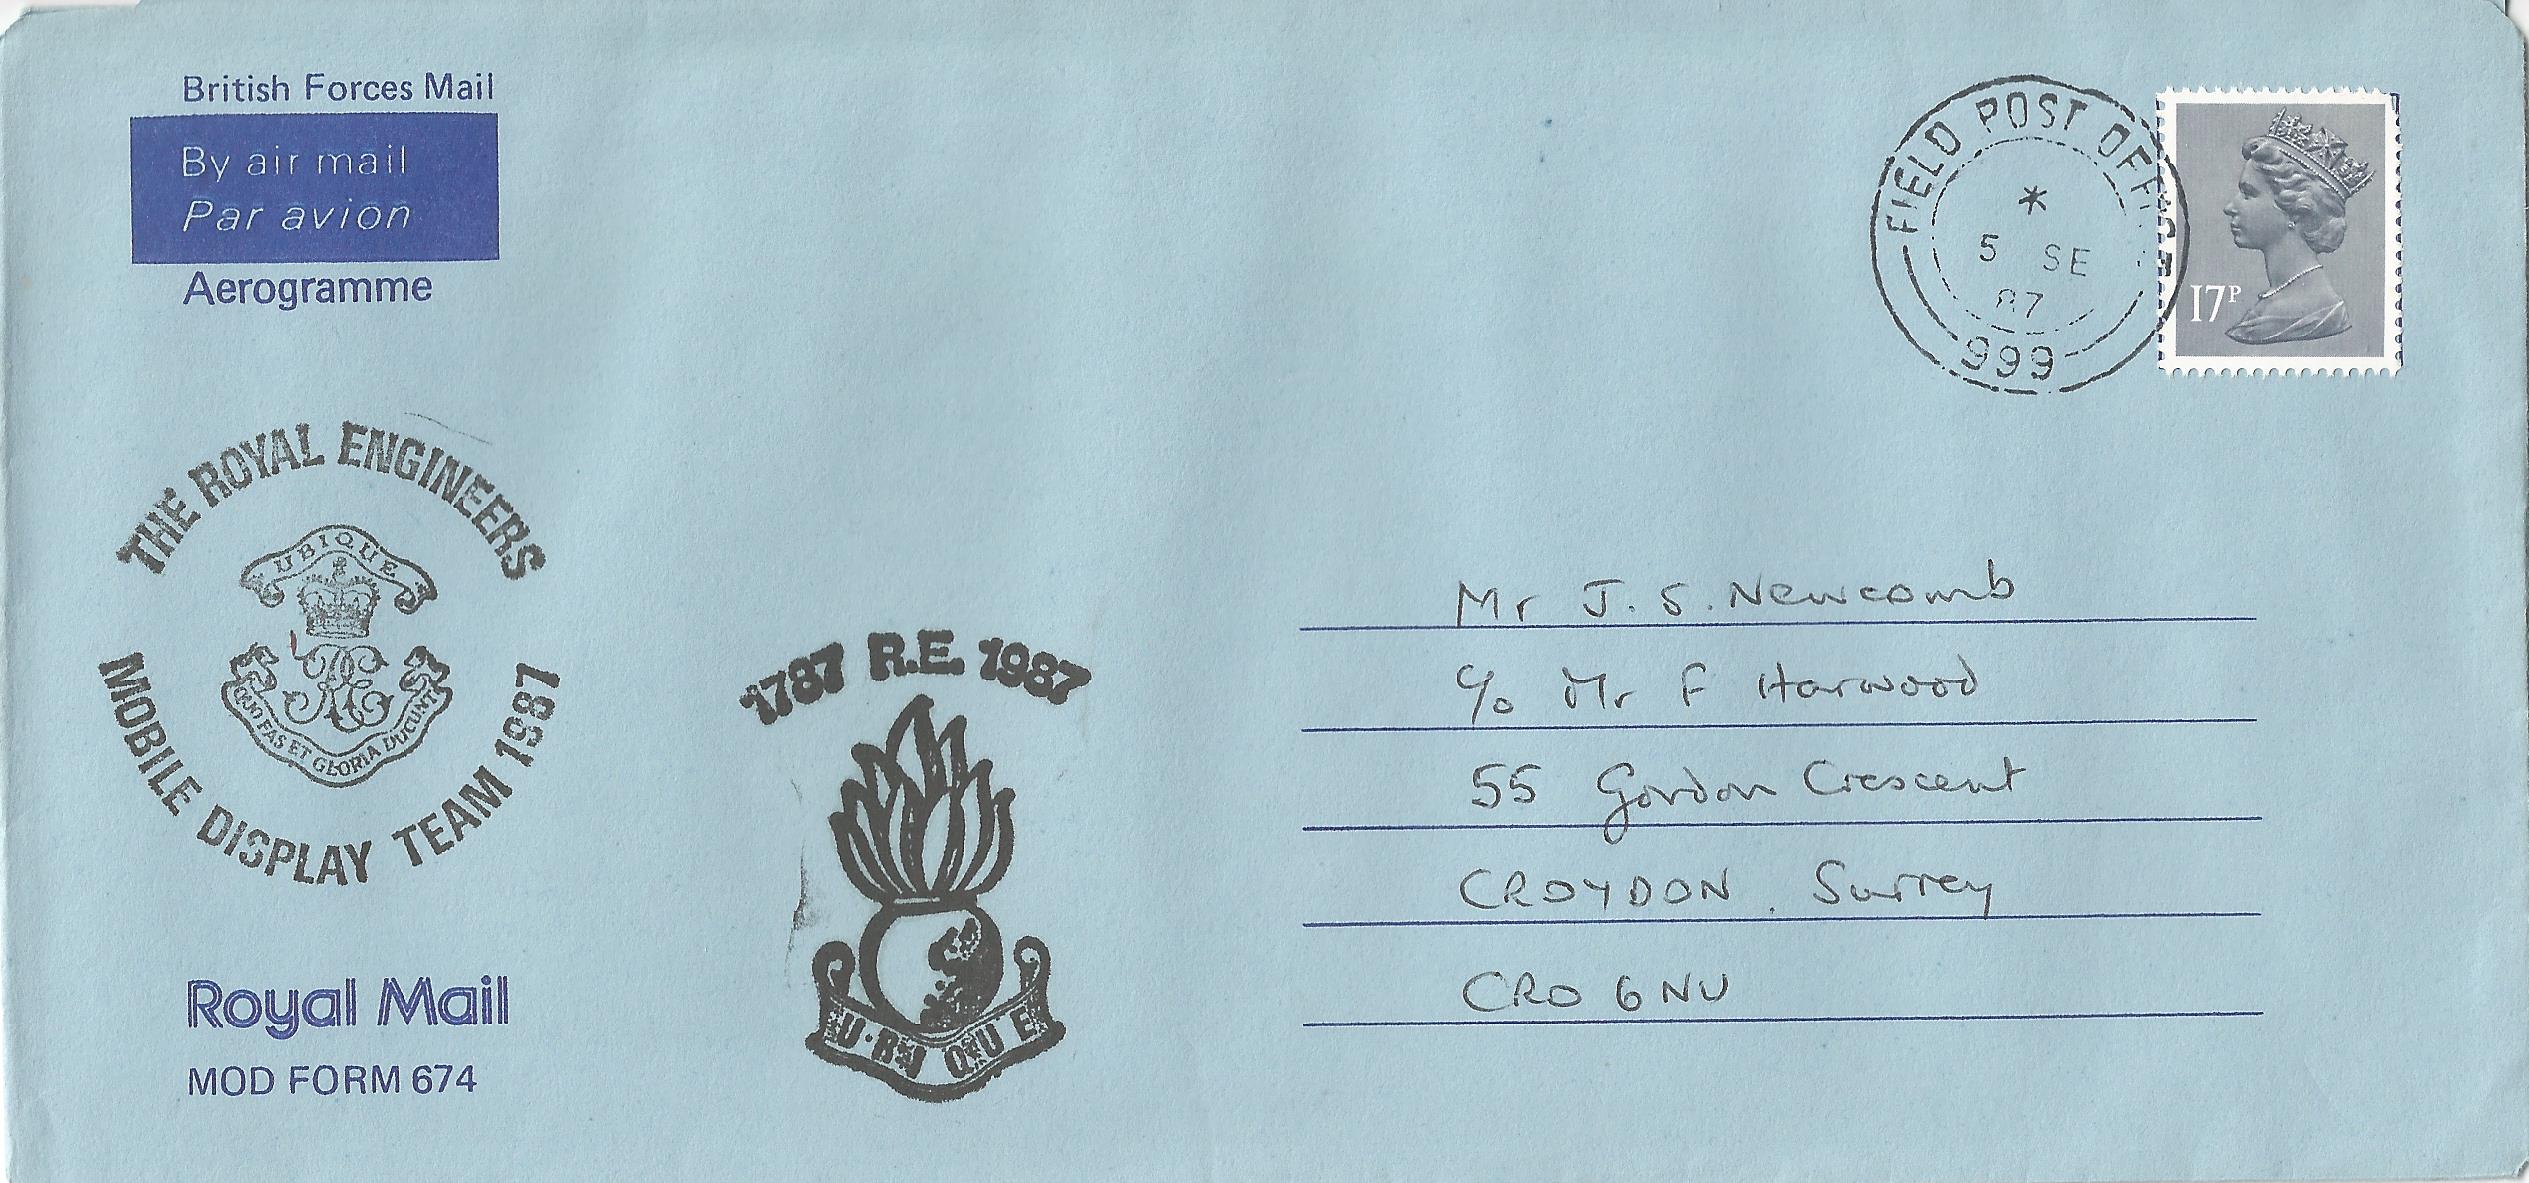 British Forces Mail
By air mail
Par avion
Aerogramme
FIELD POST OFFICE
*
5 SE
87
999
17P
THE ROYAL ENGINEERS
UBIQUE
QUO FAS ET GLORIA DUCUNT
MOBILE DISPLAY TEAM 1987
1787 R.E. 1987
U·BI QUE
Mr J. S. Newcomb
c/o Mr F Harwood
55 Gordon Crescent
CROYDON. Surrey
CRO 6NU
Royal Mail
MOD FORM 674